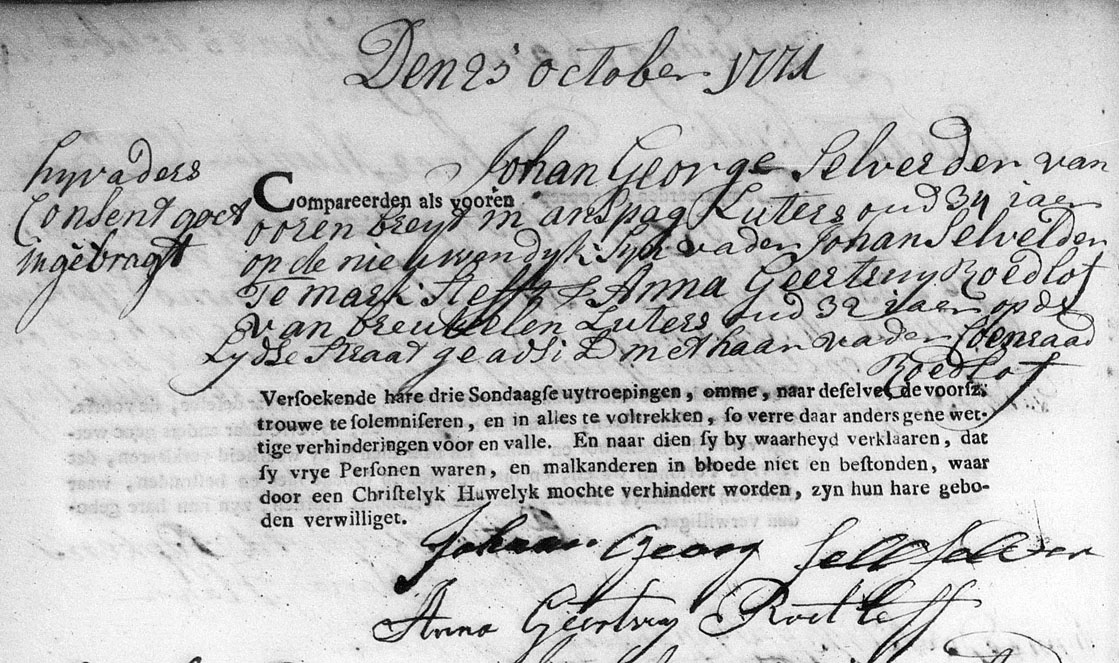 Den 25 october 1771
hy vaders
Consent goet
ingebragt
Johan George Selverder van
Compareerden als vooren
ooren breyt in anspag Luters oud 34 iaer
op de nieuwendyk Syn vader Johan Selvelder
Te mark Steff & Anna Geertruy Roedlof
van breukelen Luters oud 32 iaer op de
Lydse Straat geadsi D met haar vader Coenraad
Roedlof
Versoekende hare drie Sondaagse uytroepingen, omme, naar deselve, de voorsz;
trouwe te solemniseren, en in alles te voltrekken, so verre daar anders gene wet-
tige verhinderingen voor en valle. En naar dien sy by waarheyd verklaaren, dat
sy vrye Personen waren, en malkanderen in bloede niet en bestonden, waar
door een Christelyk Huwelyk mochte verhindert worden, zyn hun hare gebo-
den verwilliget.
Johann Georg Sellselver
Anna Geertruy Roetleff